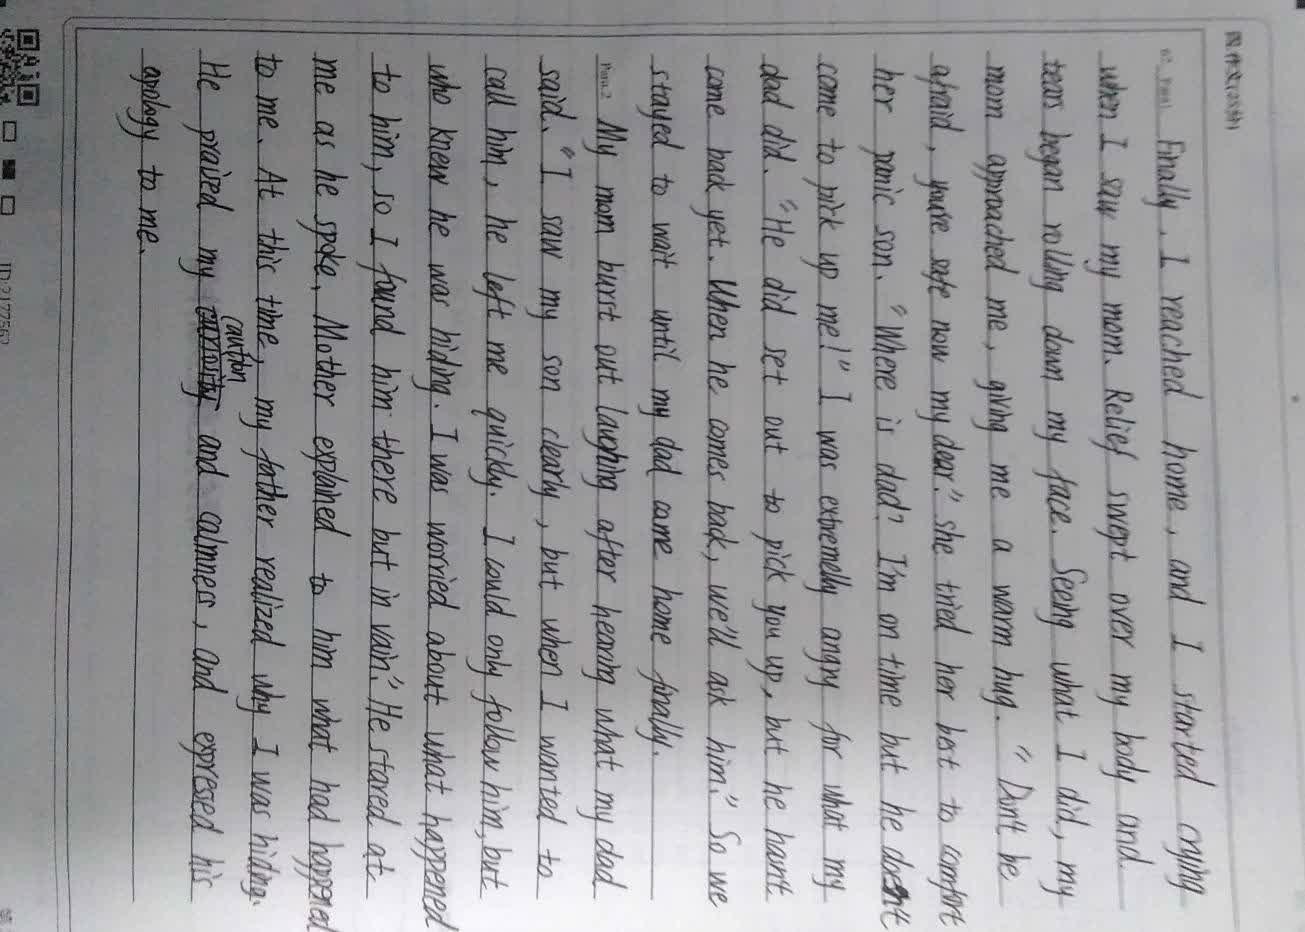 四.作文(25分)
67. Para.1 Finally, I reached home, and I started crying
when I saw my mom. Relief swept over my body and
tears began rolling down my face. Seeing what I did, my
mom approached me, giving me a warm hug. "Don't be
afraid, you're safe now my dear." she tried her best to comfort
her panic son. "Where is dad? I'm on time but he doesn't
come to pick up me!" I was extremelly angry for what my
dad did. "He did set out to pick you up, but he hasn't
come back yet. When he comes back, we'll ask him." So we
stayed to wait until my dad came home finally.
Para.2 My mom burst out laughing after hearing what my dad
said. "I saw my son clearly, but when I wanted to
call him, he left me quickly. I could only follow him, but
who knew he was hiding. I was worried about what happened
to him, so I found him there but in vain." He stared at
me as he spoke. Mother explained to him what had happened
to me. At this time, my father realized why I was hiding.
He praised my caution and calmness, and expressed his
apology to me.